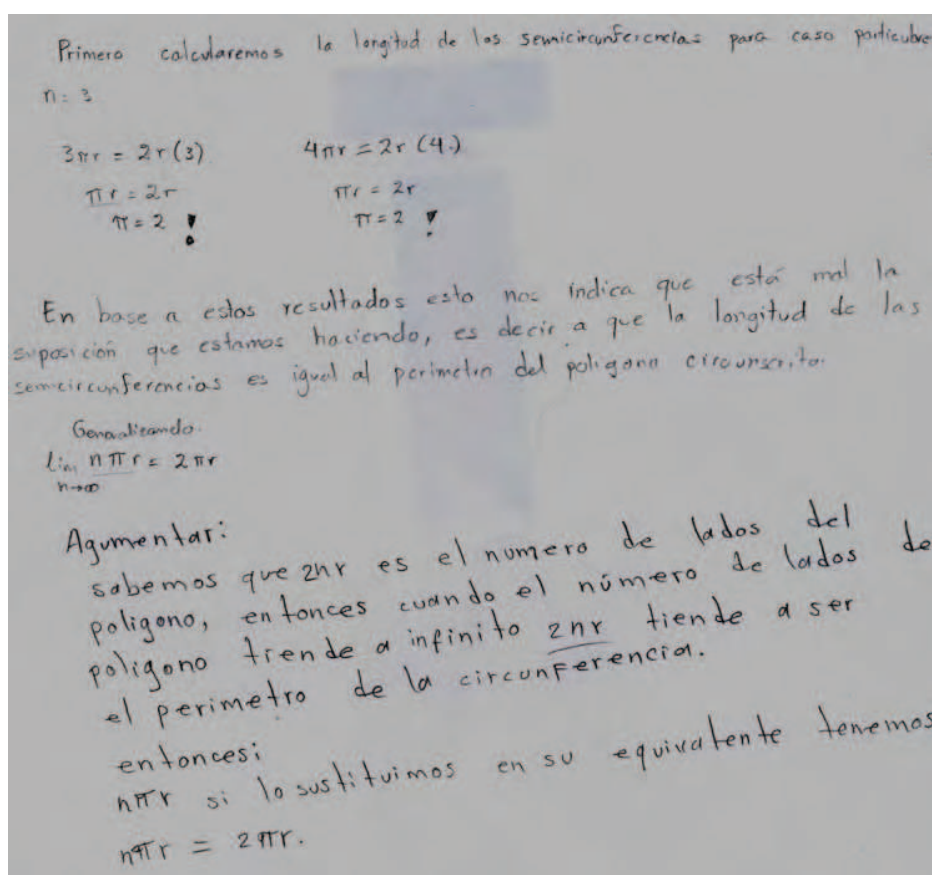 Primero calcularemos la longitud de las semicircunferencias para caso particular
n = 3
3πr = 2r (3) 4πr = 2r (4)
πr = 2r πr = 2r
π = 2 ! π = 2 !
En base a estos resultados esto nos indica que está mal la
suposición que estamos haciendo, es decir a que la longitud de las
semicircunferencias es igual al perimetro del poligono circunscrito.
Generalizando.
lim n→∞ nπr = 2πr
Agumentar:
sabemos que 2nr es el numero de lados del
poligono, entonces cuando el número de lados de
poligono tiende a infinito 2nr tiende a ser
el perimetro de la circunferencia.
entonces:
nπr si lo sustituimos en su equivalente tenemos
nπr = 2πr.